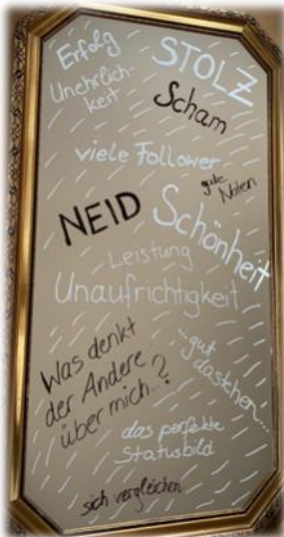 Erfolg
STOLZ
Unehrlich-
keit
Scham
viele Follower
gute
Noten
NEID
Schönheit
Leistung
Unaufrichtigkeit
Was denkt
der Andere
über mich...?
...gut
dastehen...
das perfekte
Statusbild
sich vergleichen